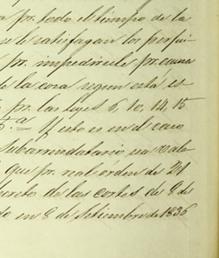 pr. todo el tiempo de la
se le satisfagan los perjui
pr. impedirsele pr. causa
de la cosa segun está es
pr. las Leyes 6 10, 14, 15
5ª = Y esto es en el caso
subarrendatario no vale
que pr. real órden de 24
decreto de las cortes de 8 de
do en 8 de Setiembre de 1836